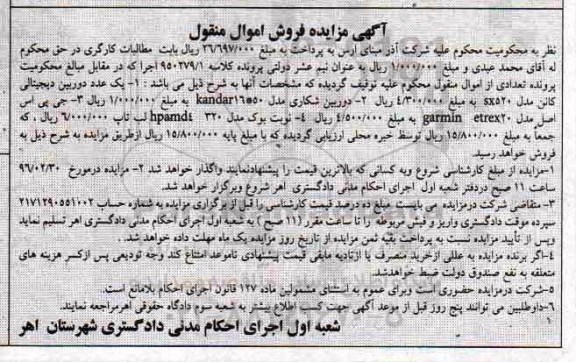 آگهی مزایده فروش اموال منقول
نظر به محکومیت محکوم علیه شرکت آذر مبنای ارس به پرداخت به مبلغ ۲۶/۶۹۷/۰۰۰ ریال بابت مطالبات کارگری در حق محکوم
له آقای محمد عبدی و مبلغ ۱/۰۰۰/۰۰۰ ریال به عنوان نیم عشر دولتی پرونده کلاسه ۹۵۰۲۷۹/۱ اجرا که در مقابل مبالغ محکومیت
پرونده تعدادی از اموال منقول محکوم علیه توقیف گردیده که مشخصات آنها به شرح ذیل می باشد : ۱- یک عدد دوربین دیجیتالی
کانن مدل sx۵۲۰ به مبلغ ۴/۳۰۰/۰۰۰ ریال ۲- دوربین شکاری مدل kandar۱۶*۵۰ به مبلغ ۱/۰۰۰/۰۰۰ ریال ۳- جی پی اس
اصل مدل garmin etrex۲۰ به مبلغ ۴/۵۰۰/۰۰۰ ریال ۴- نوت بوک مدل hpamd۴ ۳۲۰ لب تاپ ۶/۰۰۰/۰۰۰ ریال ، که
جمعاً به مبلغ ۱۵/۸۰۰/۰۰۰ ریال توسط خبره محلی ارزیابی گردیده که با مبلغ پایه ۱۵/۸۰۰/۰۰۰ ریال ازطریق مزایده به شرح ذیل به
فروش خواهد رسید.
۱-مزایده از مبلغ کارشناسی شروع وبه کسانی که بالاترین قیمت را پیشنهادنمایند واگذار خواهد شد ۲- مزایده درمورخ ۹۶/۰۲/۳۰
ساعت ۱۱ صبح دردفتر شعبه اول اجرای احکام مدنی دادگستری اهر شروع وبرگزار خواهد شد.
۳- متقاضی شرکت درمزایده می بایست مبلغ ده درصد قیمت کارشناسی را قبل از برگزاری مزایده به شماره حساب ۲۱۷۱۲۹۰۵۵۱۰۰۲
سپرده موقت دادگستری واریز و فیش مربوطه را تا ساعت مقرر (۱۱ صبح ) به شعبه اول اجرای احکام مدنی دادگستری اهر تسلیم نماید
وپس از تأیید مزایده نسبت به پرداخت بقیه ثمن مزایده از تاریخ روز مزایده یک ماه مهلت داده خواهد شد .
۴-اگر برنده مزایده به عللی ازخرید منصرف یا ازتادیه مابقی قیمت پیشنهادی تاموعد امتناع کند وجه تودیعی پس ازکسر هزینه های
متعلقه به نفع صندوق دولت ضبط خواهدشد.
۵-شرکت درمزایده حضوری است وبرای عموم به استثنای مشمولین ماده ۱۲۷ قانون اجرای احکام بلامانع است.
۶-داوطلبین می توانند پنج روز قبل از موعد آگهی جهت کسب اطلاع بیشتر به شعبه سوم دادگاه حقوقی اهرمراجعه نمایند.
شعبه اول اجرای احکام مدنی دادگستری شهرستان اهر